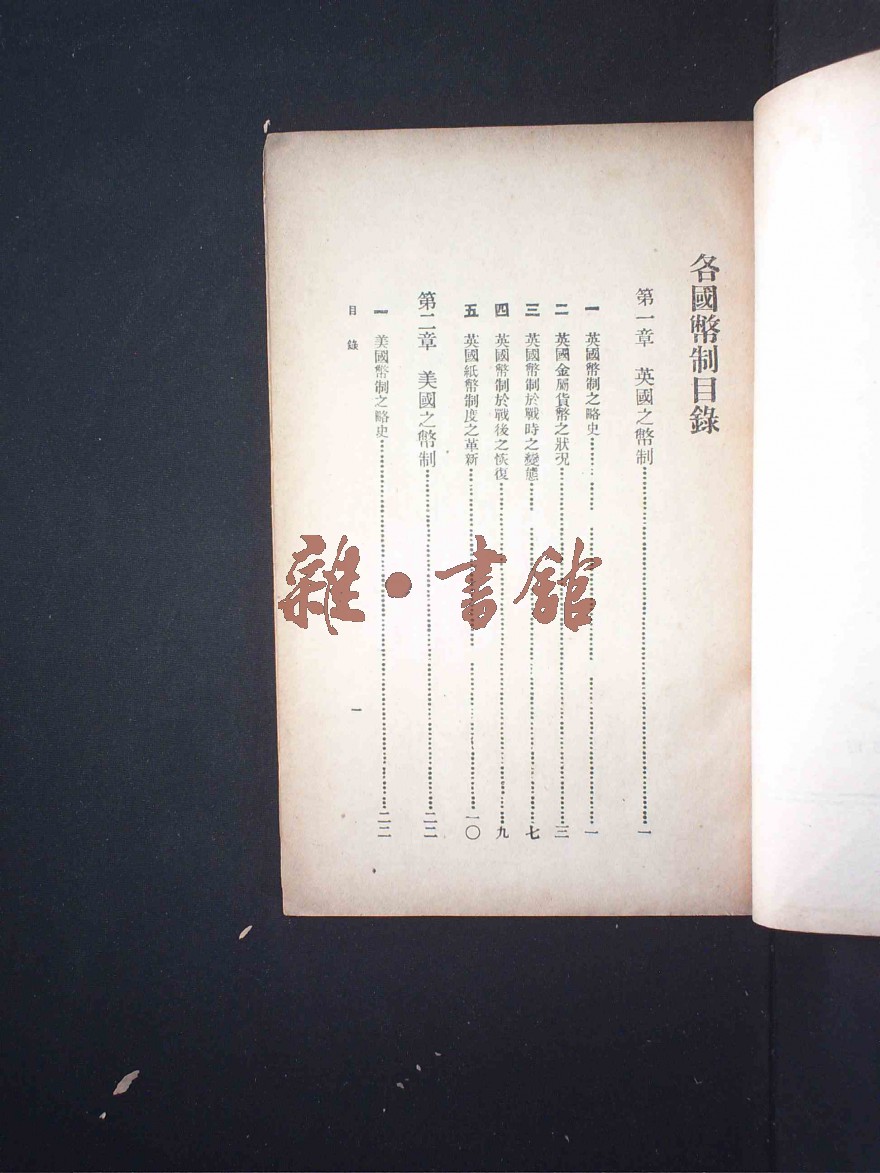 各國幣制目錄
第一章 英國之幣制……一
一 英國幣制之略史……一
二 英國金屬貨幣之狀況……三
三 英國幣制於戰時之變態……七
四 英國幣制於戰後之恢復……九
五 英國紙幣制度之革新……一〇
第二章 美國之幣制……二二
一 美國幣制之略史……二二
目錄 一
雜·書館